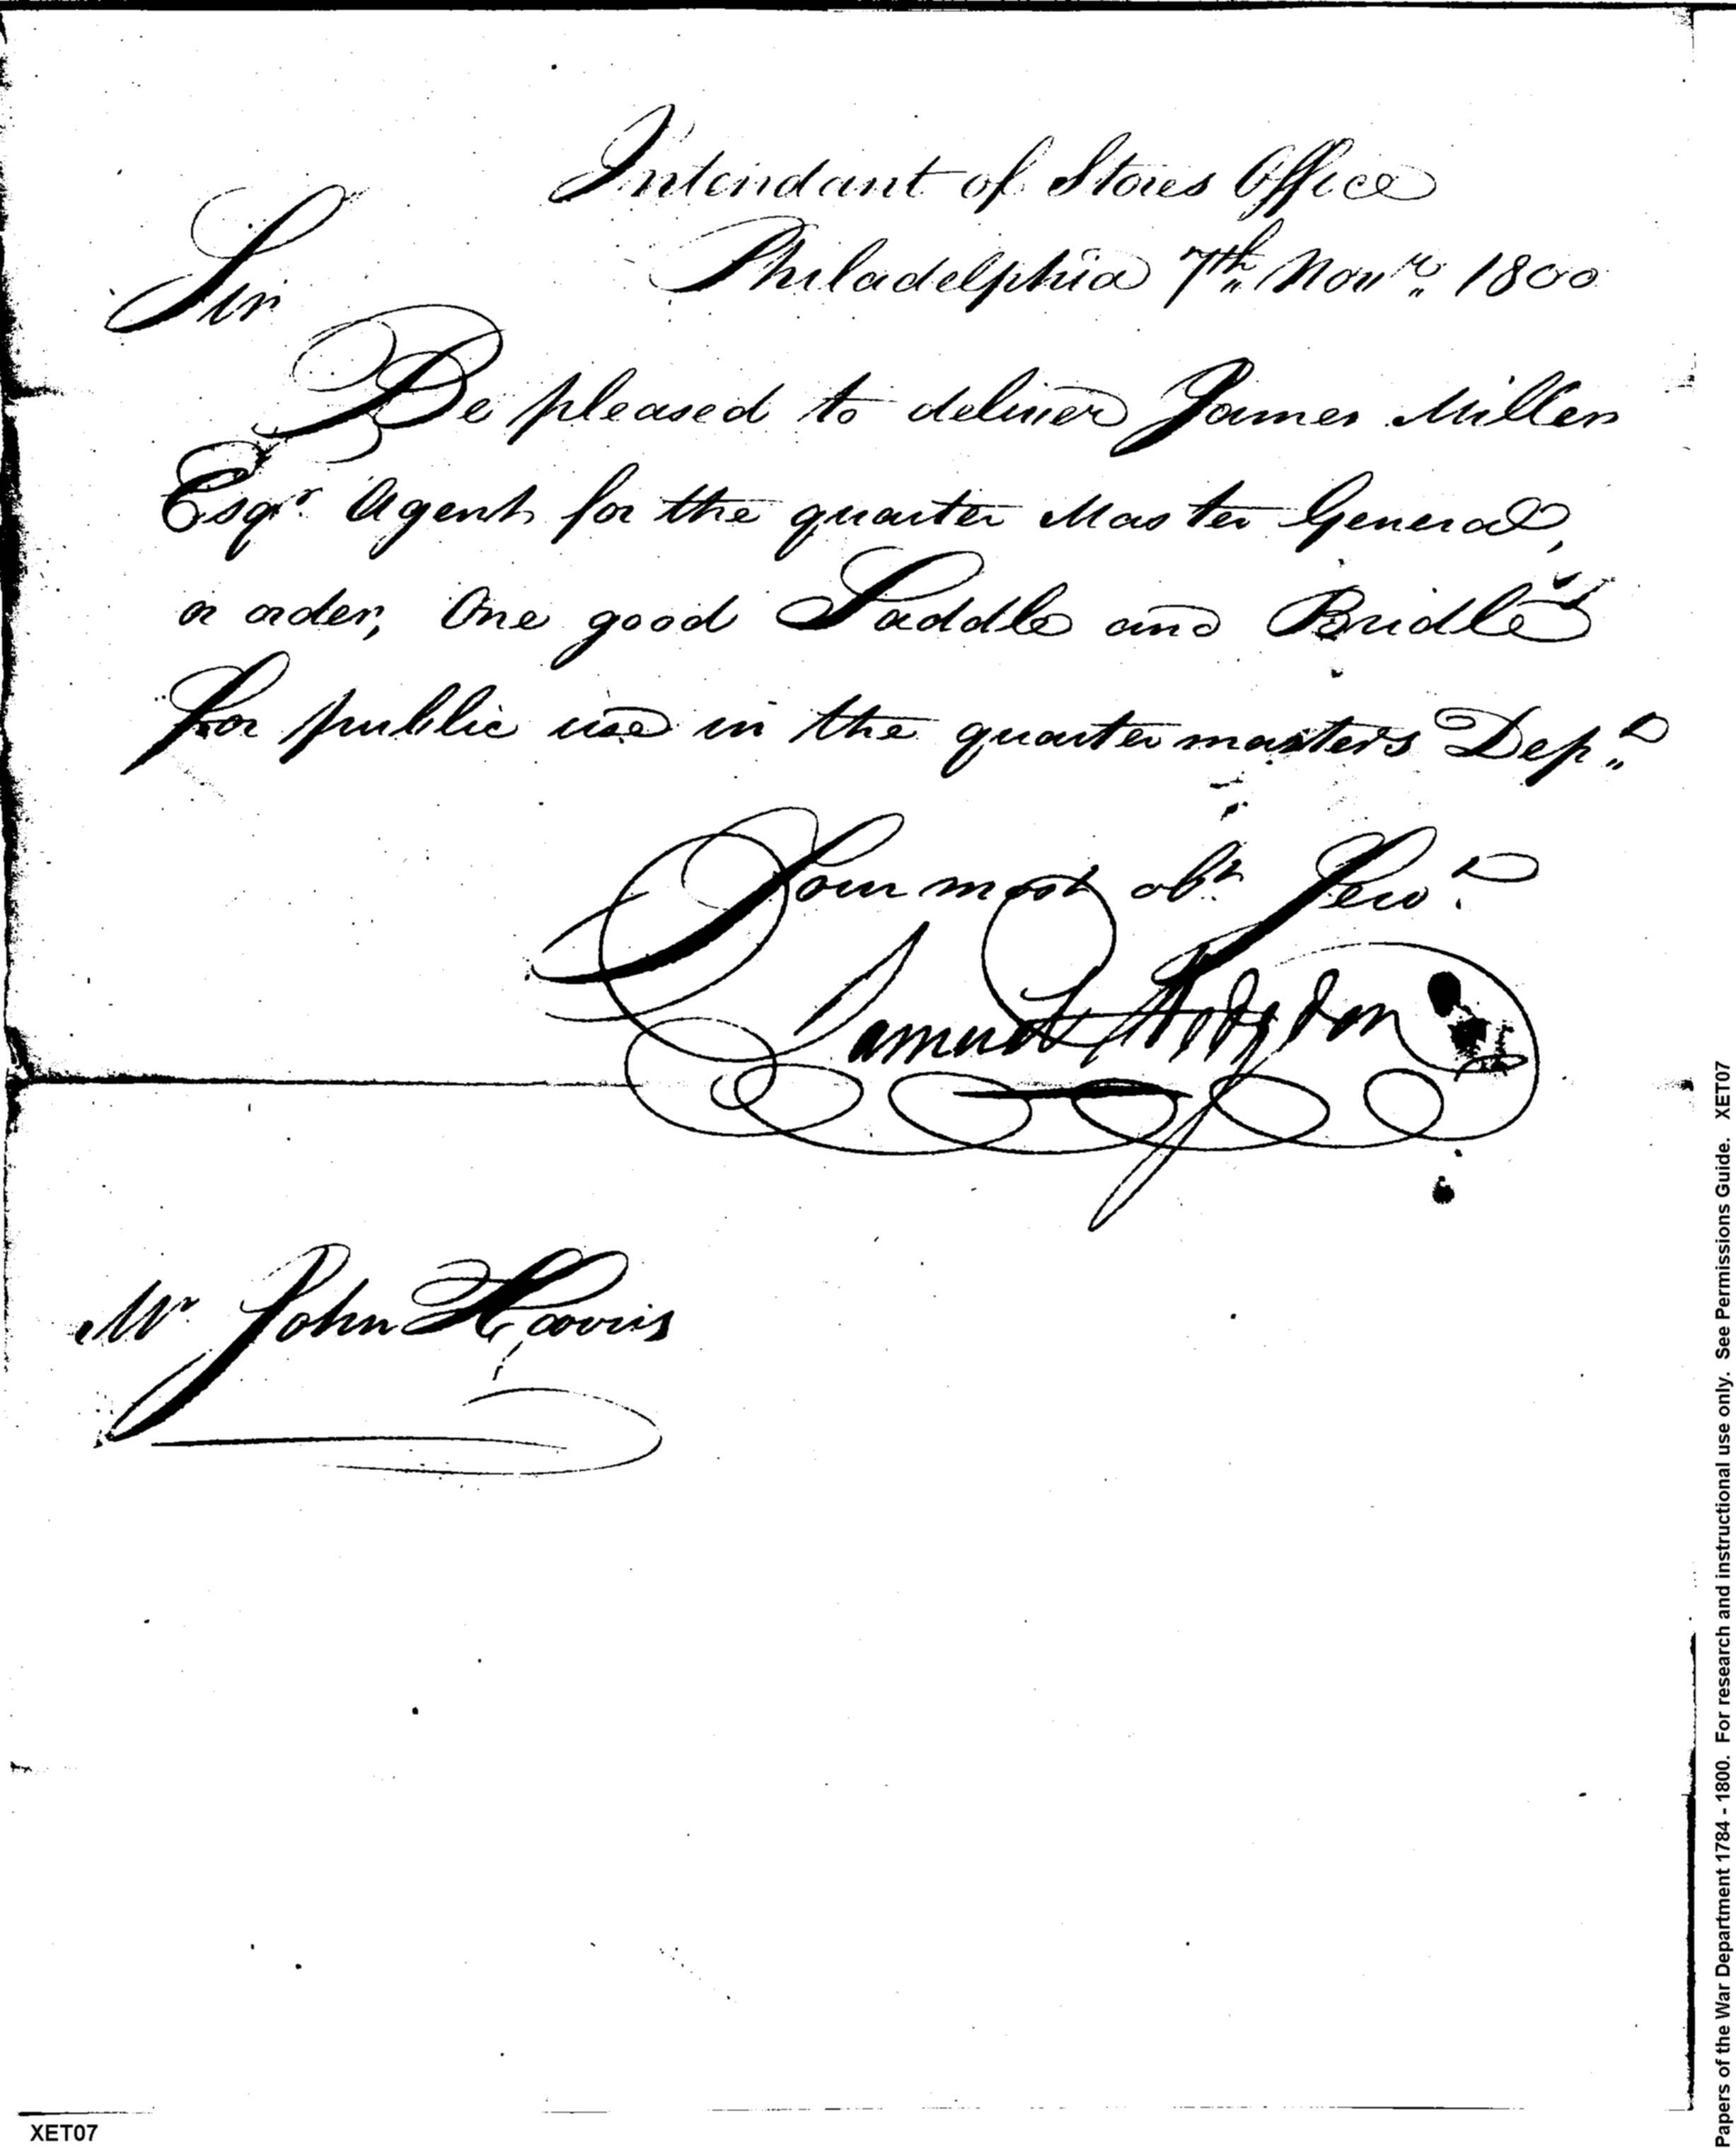 Intendant of Stores Office
Philadelphia 7th Novr. 1800
Sir
Be pleased to deliver James Miller
Esqr. Agent for the quarter Master General,
or order, One good Saddle and Bridle
for public use in the quartermasters Dept.
Your most obt. Servt.
Samuel Hodgdon
Mr John Harris
XET07
Papers of the War Department 1784 - 1800. For research and instructional use only. See Permissions Guide. XET07